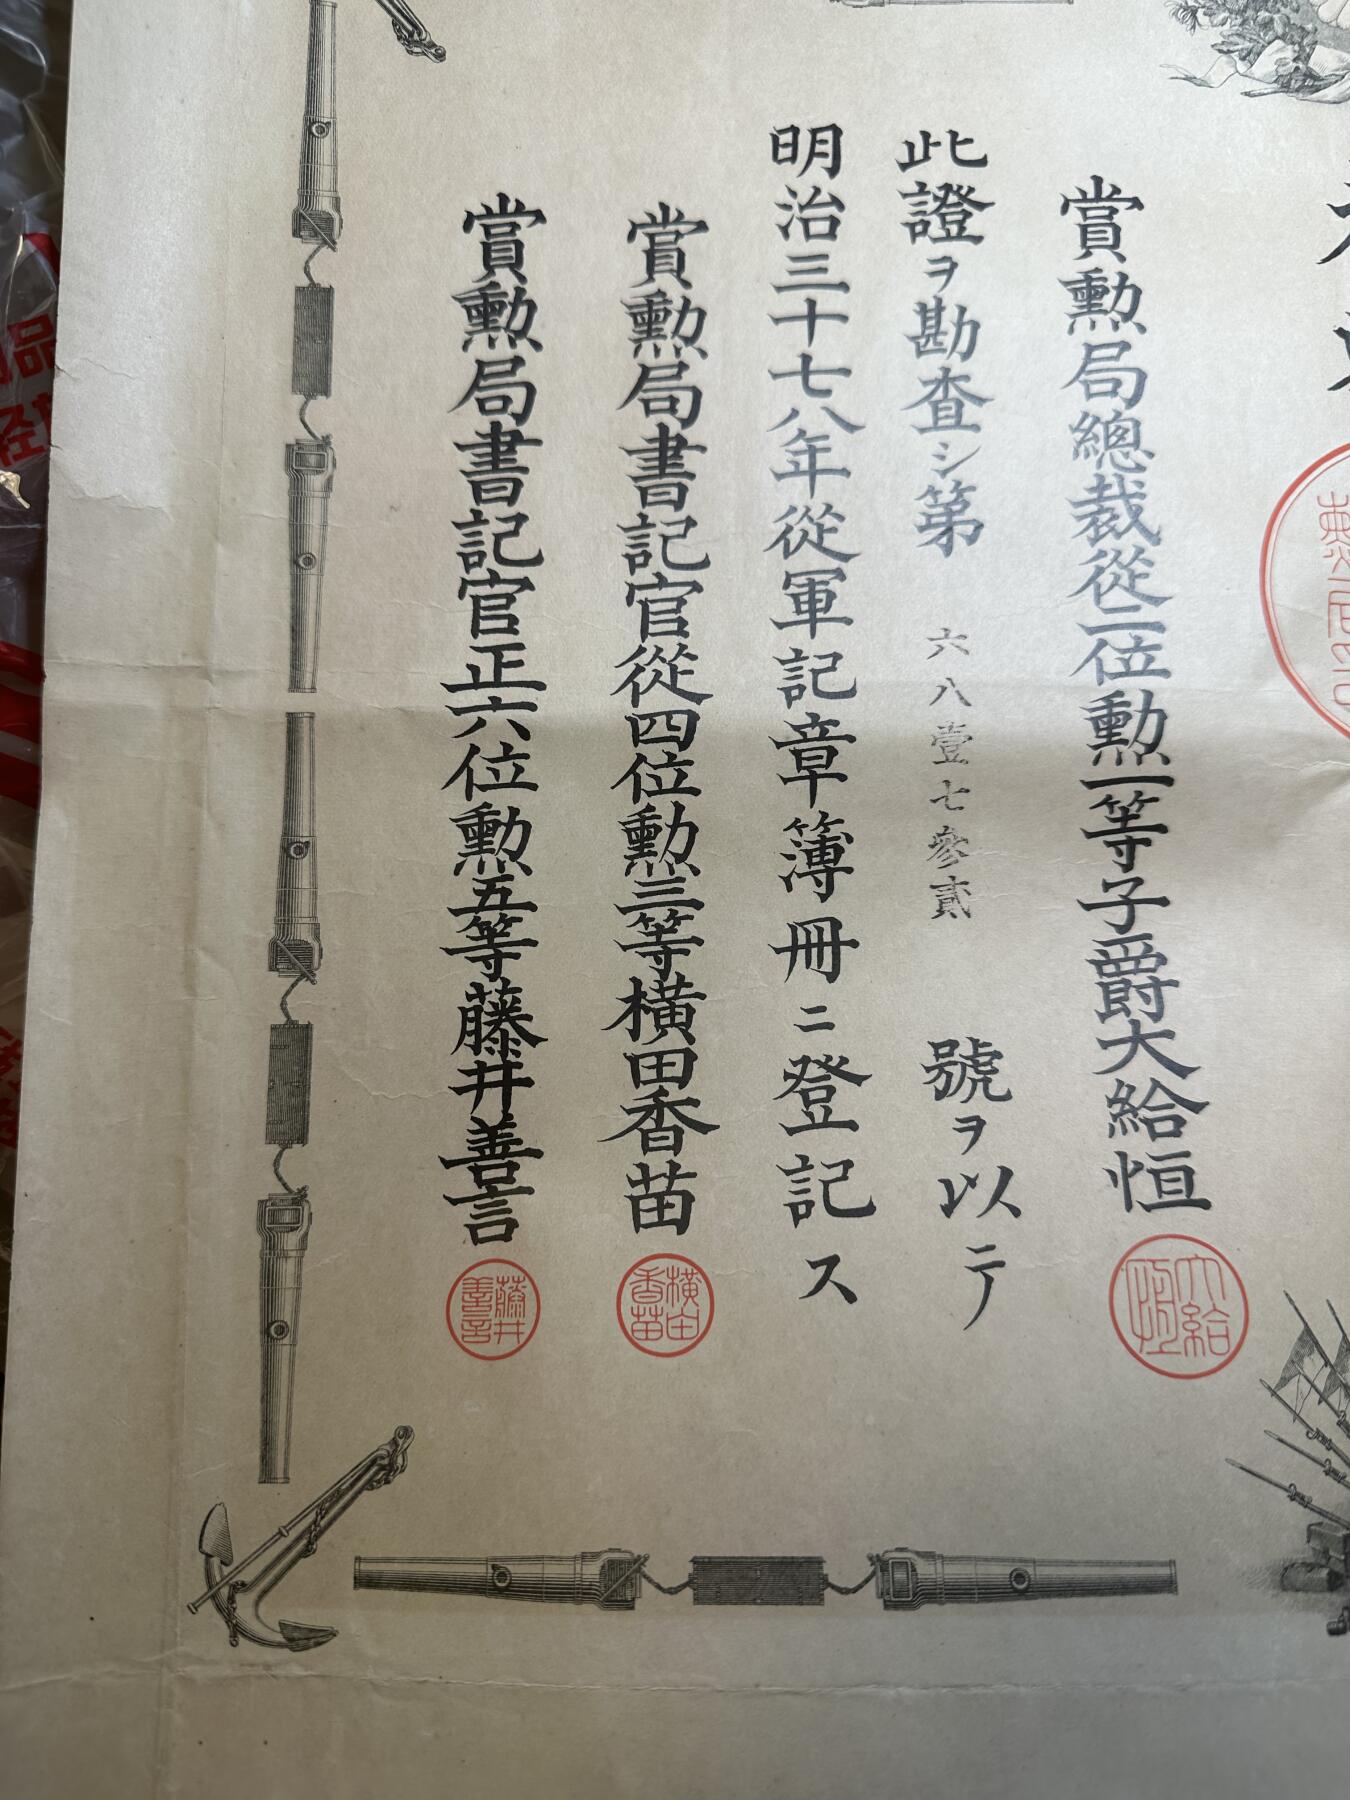 賞勲局總裁從二位勲一等子爵大給恒
大給恒
此證ヲ勘査シ第六八壹七參貳號ヲ以テ
明治三十七八年從軍記章簿冊ニ登記ス
賞勲局書記官從四位勲三等横田香苗
横田香苗
賞勲局書記官正六位勲五等藤井善言
藤井善言
品